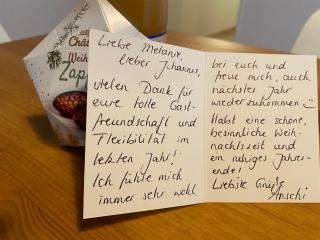 Chât
Weih
Zap
Liebe Melanie,
lieber Johannes,
vielen Dank für
eure tolle Gast-
freundschaft und
Flexibilität im
letzten Jahr!
Ich fühle mich
immer sehr wohl
bei euch und
freue mich, auch
nächstes Jahr
wiederzukommen
Habt eine schöne,
besinnliche Weih-
nachtszeit und
ein ruhiges Jahres-
ende!
Liebste Grüße
Anschi